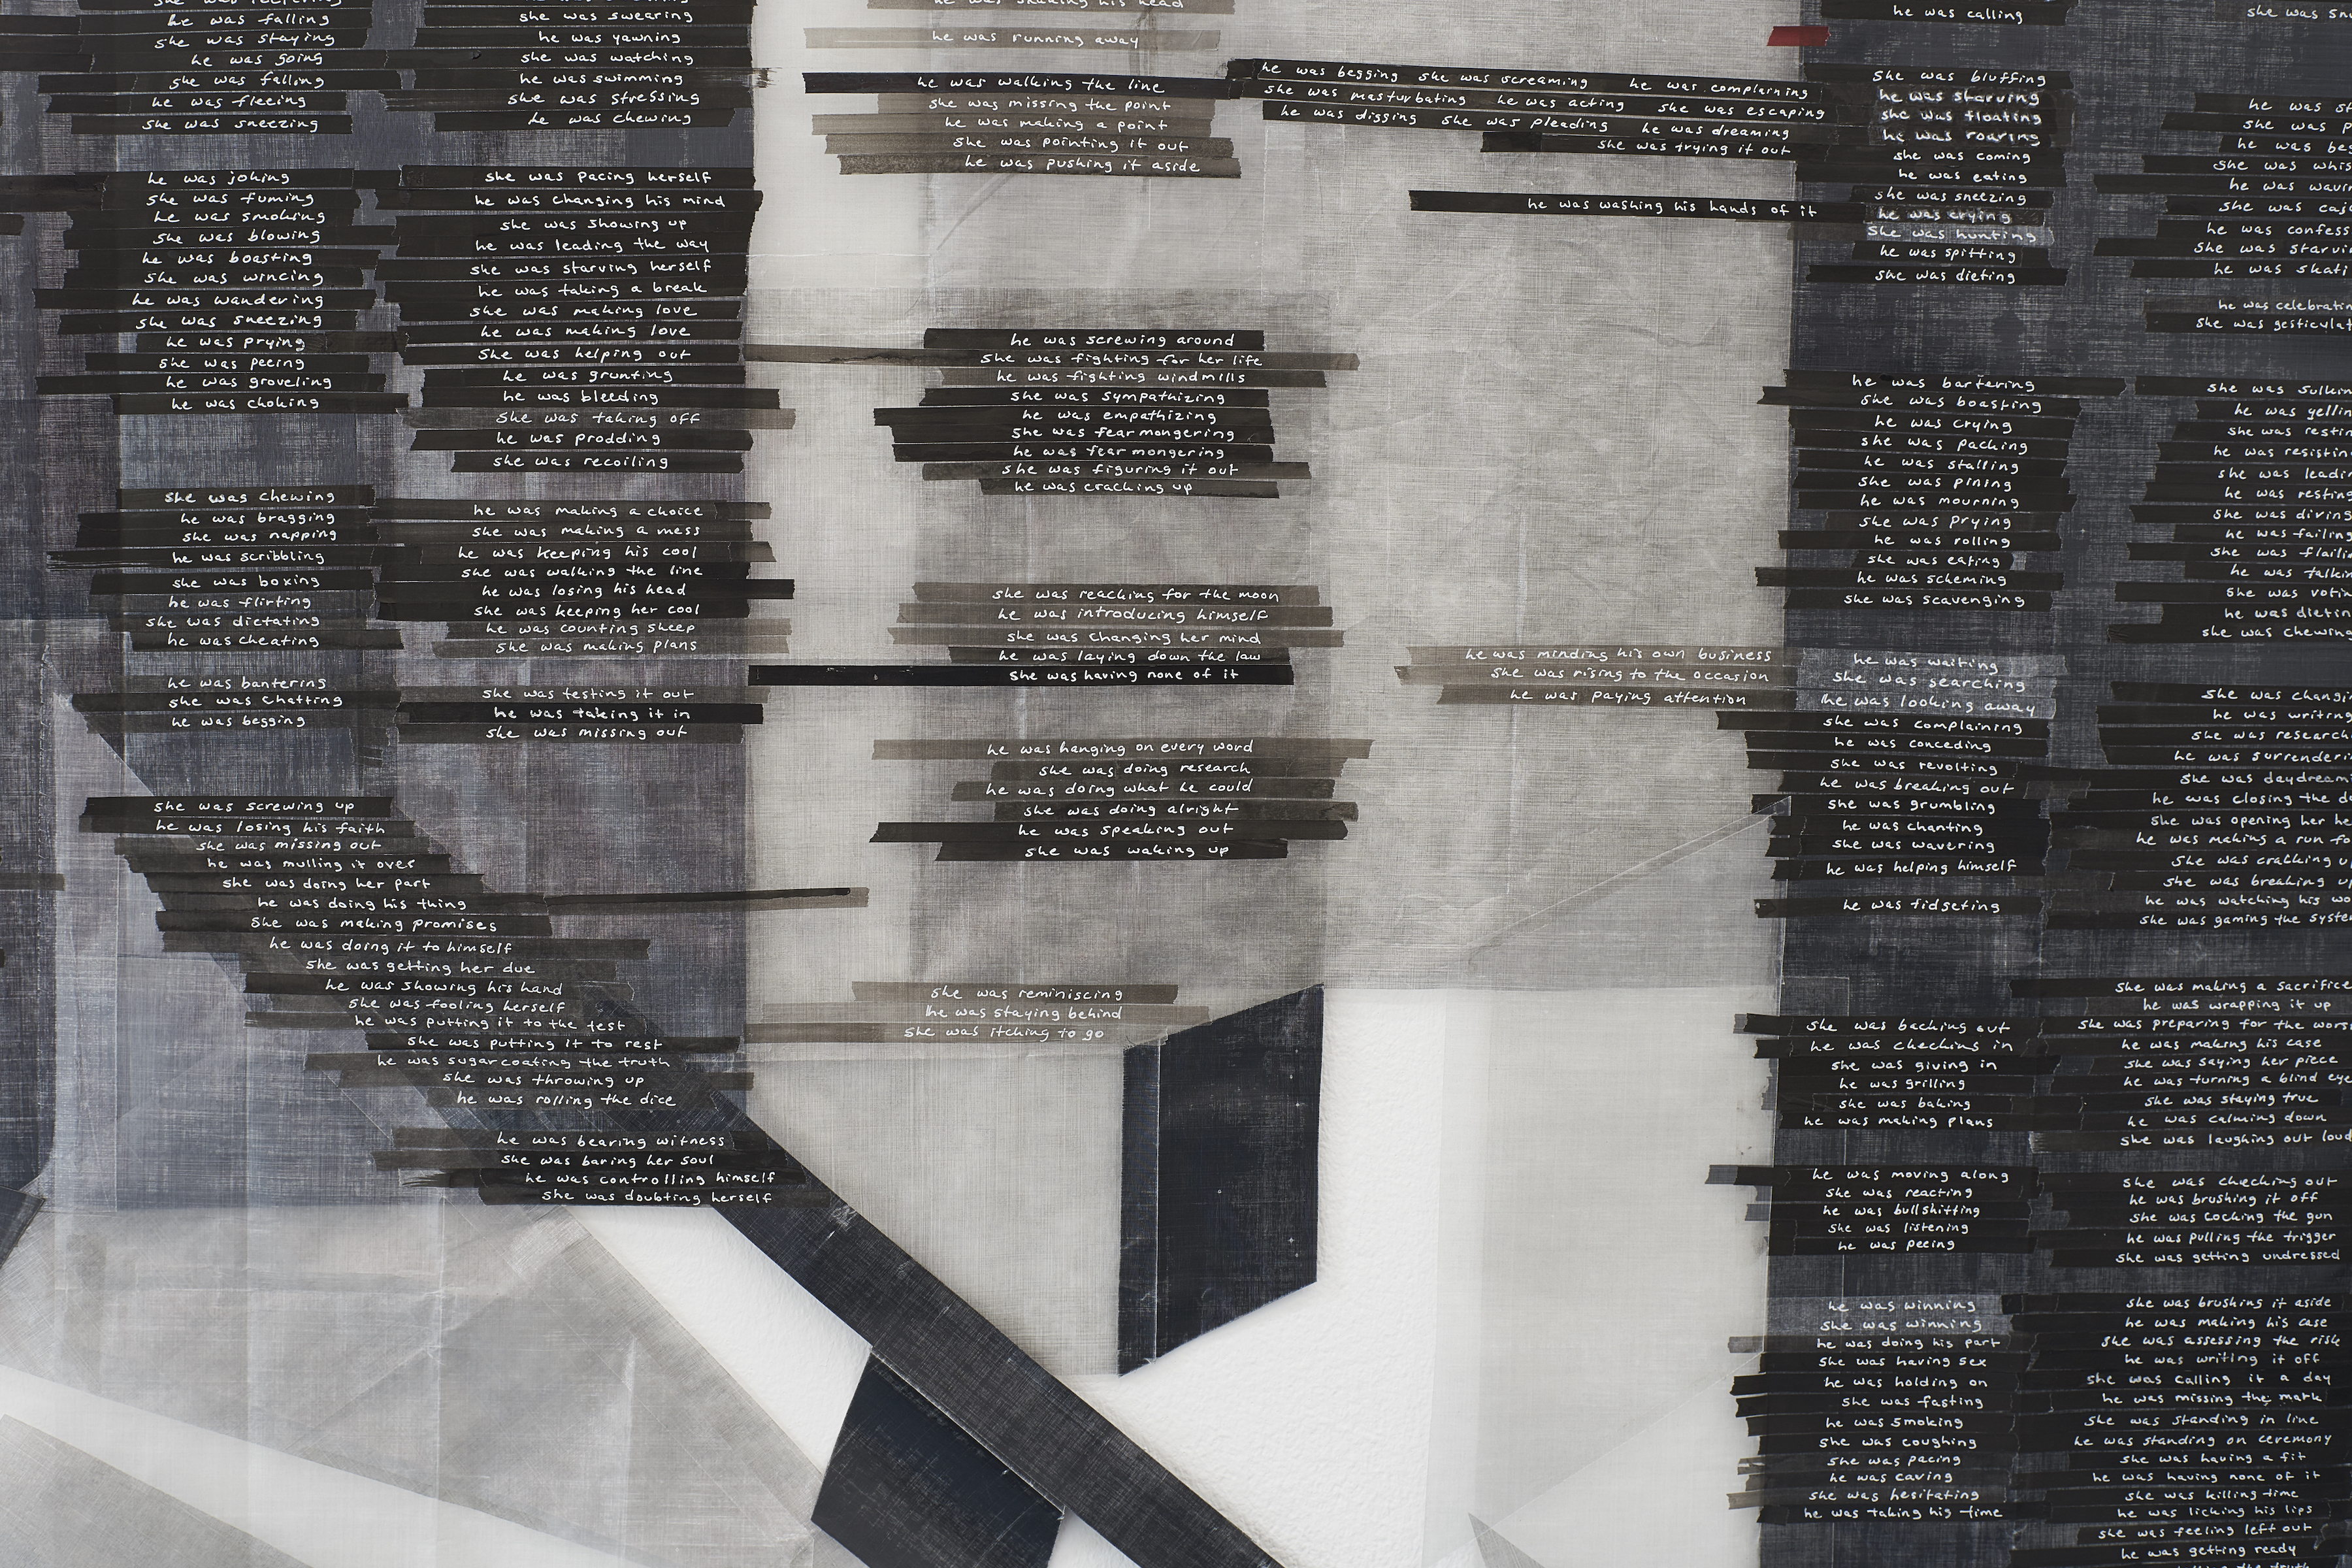 he was falling
she was staying
he was going
she was falling
he was fleeing
she was sneezing
he was joking
she was fuming
he was smoking
she was blowing
he was boasting
she was wincing
he was wandering
she was sneezing
he was prying
she was peeing
he was groveling
he was choking
she was chewing
he was bragging
she was napping
he was scribbling
she was boxing
he was flirting
she was dictating
he was cheating
he was bantering
she was chatting
he was begging
she was screwing up
he was losing his faith
she was missing out
he was mulling it over
she was doing her part
he was doing his thing
she was making promises
he was doing it to himself
she was getting her due
he was showing his hand
she was fooling herself
he was putting it to the test
she was putting it to rest
he was sugarcoating the truth
she was throwing up
he was rolling the dice
he was bearing witness
she was baring her soul
he was controlling himself
she was doubting herself
she was swearing
he was yawning
she was watching
he was swimming
she was stressing
he was chewing
she was pacing herself
he was changing his mind
she was showing up
he was leading the way
she was starving herself
he was taking a break
she was making love
he was making love
she was helping out
he was grunting
he was bleeding
she was taking off
he was prodding
she was recoiling
he was making a choice
she was making a mess
he was keeping his cool
she was walking the line
he was losing his head
she was keeping her cool
he was counting sheep
she was making plans
she was testing it out
he was taking it in
she was missing out
he was shaking his head
he was running away
he was walking the line
she was missing the point
he was making a point
she was pointing it out
he was pushing it aside
he was screwing around
she was fighting for her life
he was fighting windmills
she was sympathizing
he was empathizing
she was fearmongering
he was fearmongering
she was figuring it out
he was cracking up
she was reaching for the moon
he was introducing himself
she was changing her mind
he was laying down the law
she was having none of it
he was hanging on every word
she was doing research
he was doing what he could
she was doing alright
he was speaking out
she was waking up
she was reminiscing
he was staying behind
she was itching to go
he was begging she was screaming he was complaining
she was masturbating he was acting she was escaping
he was digging she was pleading he was dreaming
she was trying it out
he was washing his hands of it
he was minding his own business
she was rising to the occasion
he was paying attention
he was calling
she was bluffing
he was starving
she was floating
he was roaring
she was coming
he was eating
she was sneezing
he was crying
she was hunting
he was spitting
she was dieting
he was bartering
she was boasting
he was crying
she was packing
he was stalling
she was pining
he was mourning
she was prying
he was rolling
she was eating
he was scheming
she was scavenging
he was waiting
she was searching
he was looking away
she was complaining
he was conceding
she was revolting
he was breaking out
she was grumbling
he was chanting
she was wavering
he was helping himself
he was fidgeting
she was backing out
he was checking in
she was giving in
he was grilling
she was baking
he was making plans
he was moving along
she was reacting
he was bullshitting
she was listening
he was peeing
he was winning
she was winning
he was doing his part
she was having sex
he was holding on
she was fasting
he was smoking
she was coughing
she was pacing
he was caving
she was hesitating
he was taking his time
she was
he was
she was
he was
she was
he was
she was
he was
she was
he was
he was
she was
she was
he was
she was
he was
she was
he was
she was
he was
she was
he was
she was
he was
she was chewing
she was
he was
she was
he was
she was
he was closing the
she was opening her
he was making a run
she was cracking
she was breaking
he was watching his
she was gaming the
she was making a sacrifice
he was wrapping it up
she was preparing for the
he was making his case
she was saying her piece
he was turning a blind eye
she was staying true
he was calming down
she was laughing out loud
she was checking out
he was brushing it off
she was cocking the gun
he was pulling the trigger
she was getting undressed
she was brushing it aside
he was making his case
she was assessing the risk
he was writing it off
she was calling it a day
he was missing the mark
she was standing in line
he was standing on ceremony
she was having a fit
he was having none of it
she was killing time
he was licking his lips
she was feeling left out
he was getting ready